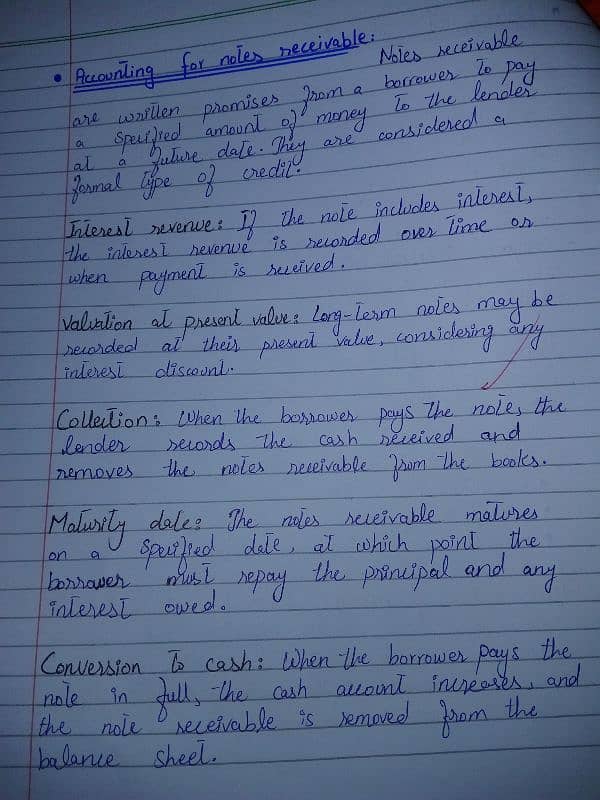 • Accounting for notes receivable:
Notes receivable
are written promises from a borrower to pay
a specified amount of money to the lender
at a future date. They are considered a
formal type of credit.
Interest revenue: If the note includes interest,
the interest revenue is recorded over time or
when payment is received.
Valuation at present value: Long-term notes may be
recorded at their present value, considering any
interest discount.
Collection: When the borrower pays the note, the
lender records the cash received and
removes the notes receivable from the books.
Maturity date: The notes receivable matures
on a specified date, at which point the
borrower must repay the principal and any
interest owed.
Conversion to cash: When the borrower pays the
note in full, the cash account increases, and
the note receivable is removed from the
balance sheet.